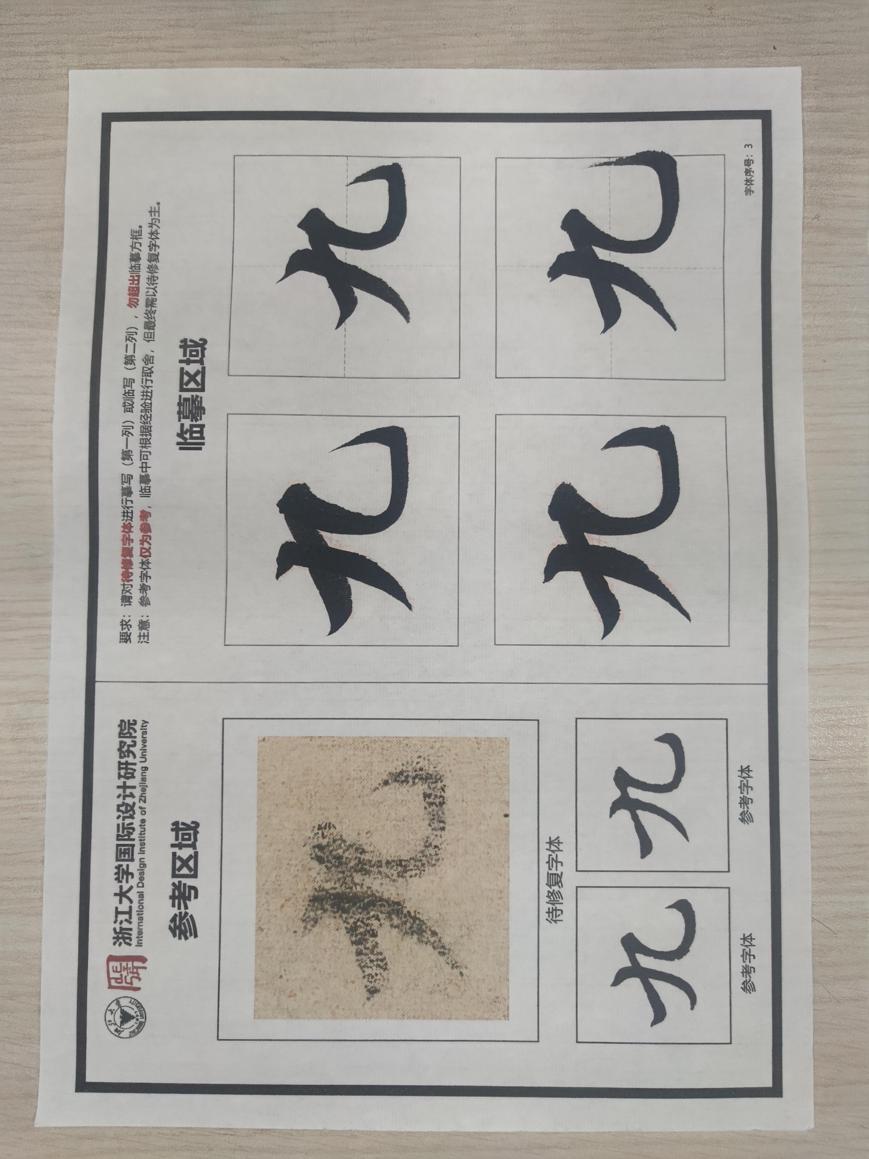 浙江大学国际设计研究院
International Design Institute of Zhejiang University
参考区域
九
待修复字体
九 九
参考字体 参考字体
要求：请对待修复字体进行摹写（第一列）或临写（第二列），勿超出临摹方框。
注意：参考字体仅为参考，临摹中可根据经验进行取舍，但最终需以待修复字体为主。
临摹区域
九 九
九 九
字体序号：3